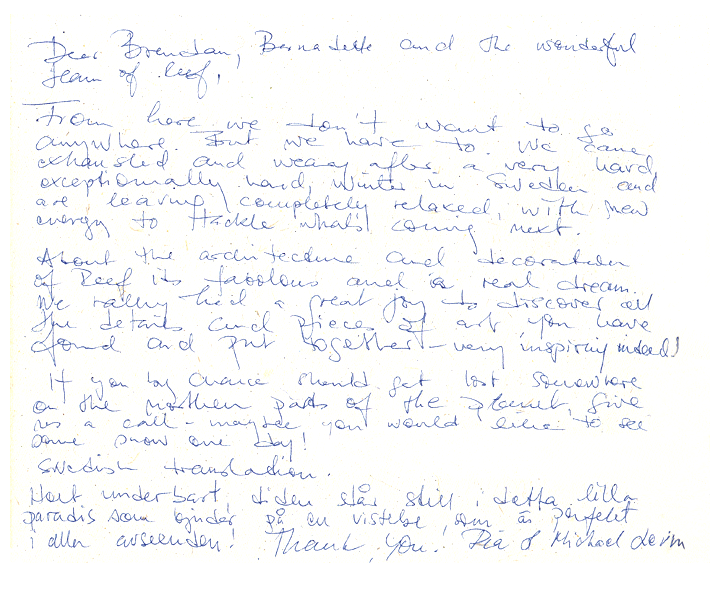 Dear Brendan, Bernadette and the wonderful
team of Reef,
From here we don't want to go
anywhere. But we have to. We came
exhausted and weary after a very hard,
exceptionally hard, winter in Sweden and
are leaving completely relaxed, with new
energy to tackle what's coming next.
About the architecture and decoration
of Reef its fabolous and a real dream.
We really had a great joy to discover all
the details and pieces of art you have
found and put together - very inspiring indeed!
If you by chance should get lost somewhere
on the northern parts of the planet, give
us a call - maybe you would like to see
some snow one day!
Swedish translation.
underbart, tiden står still i detta lilla
paradis som bjuder på en vistelse, som är perfekt
i alla avseenden! Thank you! Pia & Michael